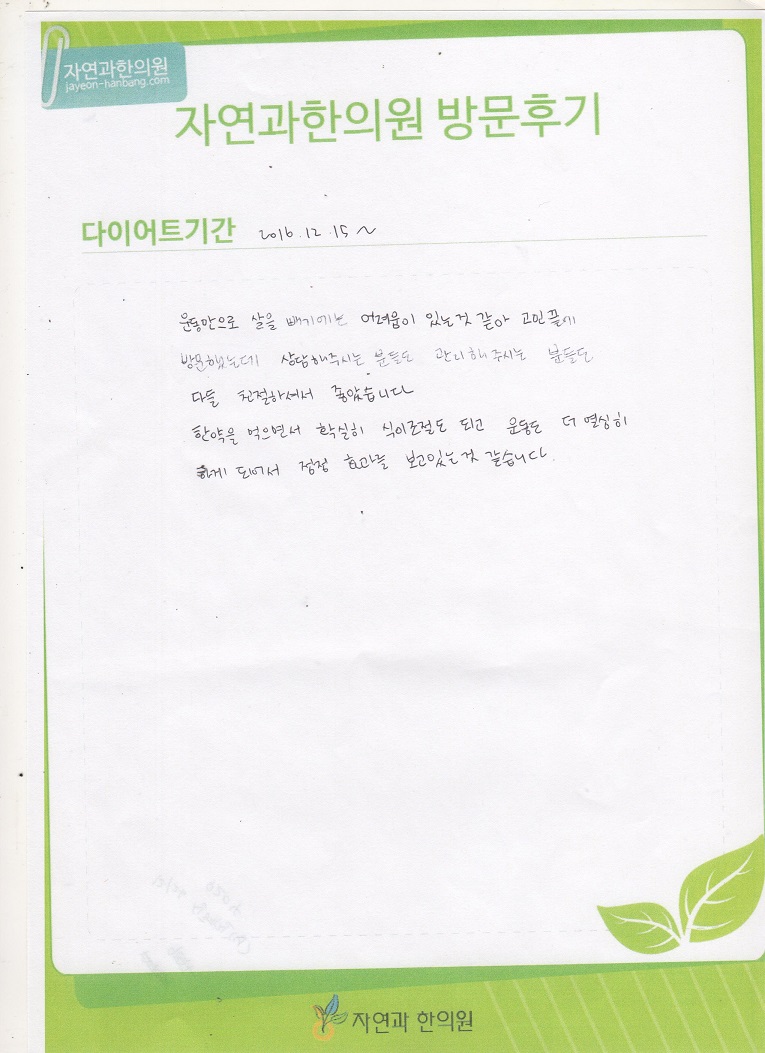 자연과한의원
jayeon-hanbang.com
자연과한의원 방문후기
다이어트기간 2016.12.15~
운동만으로 살을 빼기에는 어려움이 있는것 같아 고민끝에
방문했는데 상담해주시는 분들도 관리해주시는 분들도
다들 친절하셔서 좋았습니다
한약을 먹으면서 확실히 식이조절도 되고 운동도 더 열심히
하게 되어서 점점 효과를 보고있는것 같습니다.
자연과 한의원